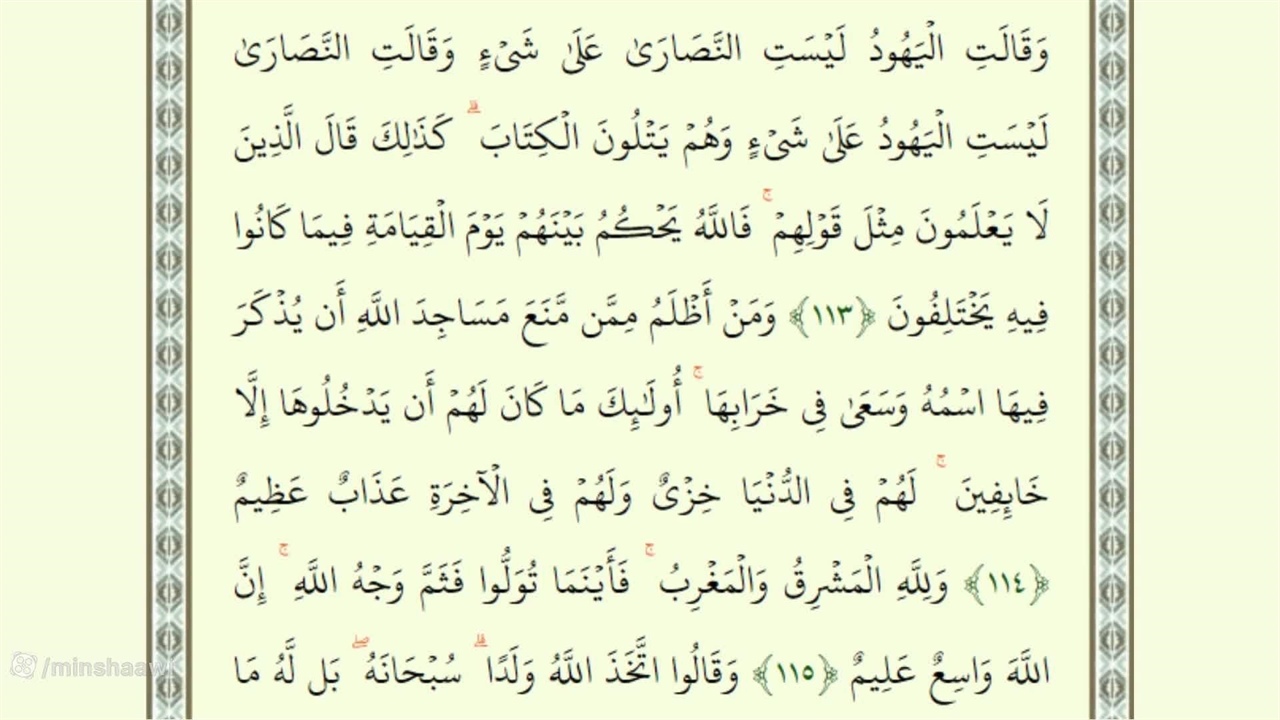 وَقَالَتِ الْيَهُودُ لَيْسَتِ النَّصَارَىٰ عَلَىٰ شَيْءٍ وَقَالَتِ النَّصَارَىٰ
لَيْسَتِ الْيَهُودُ عَلَىٰ شَيْءٍ وَهُمْ يَتْلُونَ الْكِتَابَ ۗ كَذَٰلِكَ قَالَ الَّذِينَ
لَا يَعْلَمُونَ مِثْلَ قَوْلِهِمْ ۚ فَاللَّهُ يَحْكُمُ بَيْنَهُمْ يَوْمَ الْقِيَامَةِ فِيمَا كَانُوا
فِيهِ يَخْتَلِفُونَ ﴿١١٣﴾ وَمَنْ أَظْلَمُ مِمَّن مَّنَعَ مَسَاجِدَ اللَّهِ أَن يُذْكَرَ
فِيهَا اسْمُهُ وَسَعَىٰ فِي خَرَابِهَا ۚ أُولَٰئِكَ مَا كَانَ لَهُمْ أَن يَدْخُلُوهَا إِلَّا
خَائِفِينَ ۚ لَهُمْ فِي الدُّنْيَا خِزْيٌ وَلَهُمْ فِي الْآخِرَةِ عَذَابٌ عَظِيمٌ
﴿١١٤﴾ وَلِلَّهِ الْمَشْرِقُ وَالْمَغْرِبُ ۚ فَأَيْنَمَا تُوَلُّوا فَثَمَّ وَجْهُ اللَّهِ ۚ إِنَّ
اللَّهَ وَاسِعٌ عَلِيمٌ ﴿١١٥﴾ وَقَالُوا اتَّخَذَ اللَّهُ وَلَدًا ۗ سُبْحَانَهُ ۖ بَل لَّهُ مَا
/minshaawi